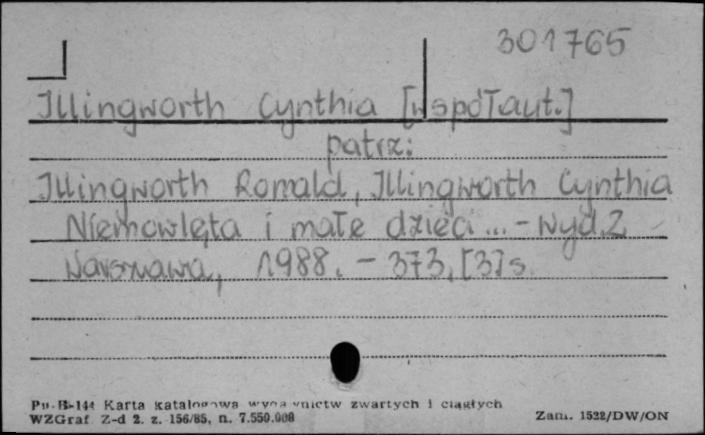 301765
Illingworth Cynthia [współaut.]
patrz:
Illingworth Ronald, Illingworth Cynthia
Niemowlęta i małe dzieci ... - Wyd. 2
Warszawa, 1988. - 373, [3] s.
Pu-B-144 Karta katalogowa wydawnictw zwartych i ciągłych
WZGraf. Z-d 2. z. 156/85, n. 7.550.008
Zam. 1522/DW/ON